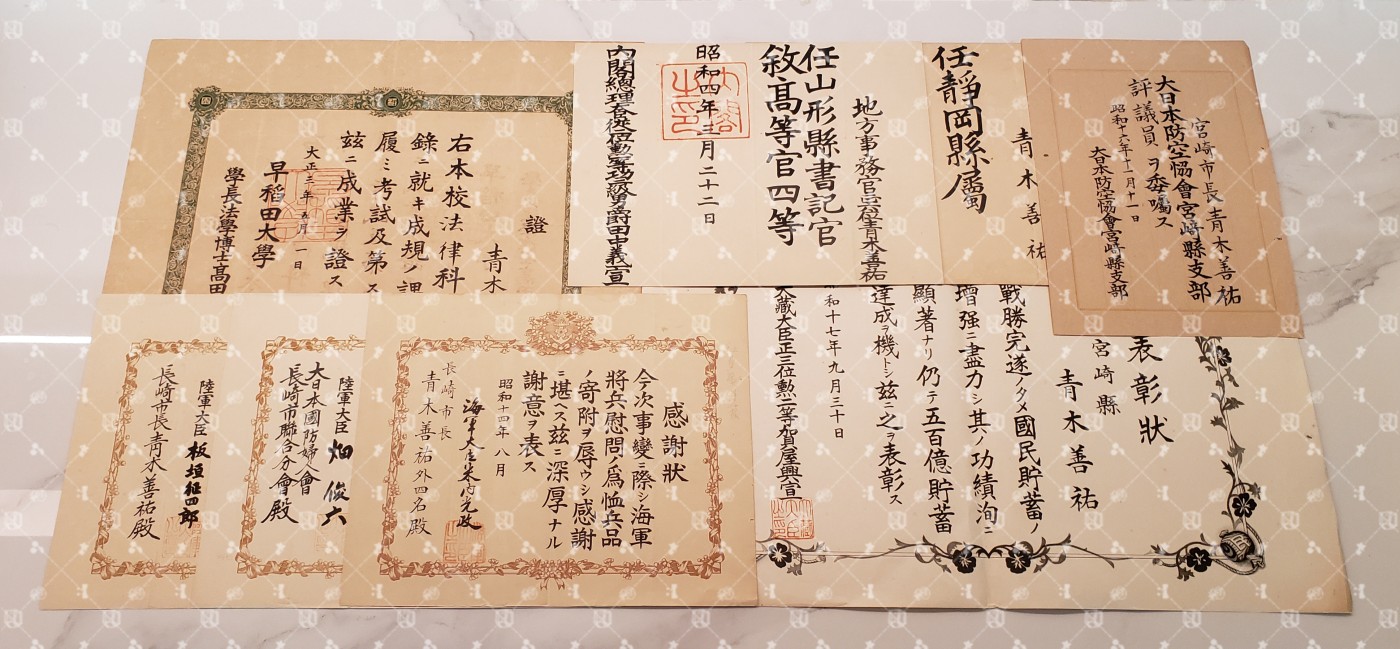 證
青木
右本校法律科
錄ニ就キ成規ノ課
履ミ考試及第ス
玆ニ成業ヲ證ス
大正三年五月一日
早稻田大學
學長法學博士髙田
任靜岡縣屬
青木善祐
地方事務官正六位青木善祐
任山形縣書記官
敘高等官四等
昭和四年三月二十二日
內閣之印
內閣總理大臣
男爵田中義一宣
宮崎市長青木善祐
大日本防空協會宮崎縣支部
評議員ヲ委囑ス
昭和十六年十一月十一日
大日本防空協會宮崎縣支部
表彰狀
宮崎縣
青木善祐
戰勝完遂ノタメ國民貯蓄ノ
增强ニ盡力シ其ノ功績洵ニ
顯著ナリ仍テ五百億貯蓄
達成ヲ機トシ玆ニ之ヲ表彰ス
和十七年九月三十日
大藏大臣正三位勲二等賀屋興宣
感謝狀
今次事變ニ際シ海軍
將兵慰問ノ爲恤兵品
ノ寄附ヲ辱ウシ感謝
ニ堪ヘス玆ニ深厚ナル
謝意ヲ表ス
昭和十四年八月
海軍大臣米內光政
長崎市長
青木善祐外四名殿
陸軍大臣 畑俊六
大日本國防婦人會
長崎市聯合分會殿
陸軍大臣 板垣征四郎
長崎市長青木善祐殿